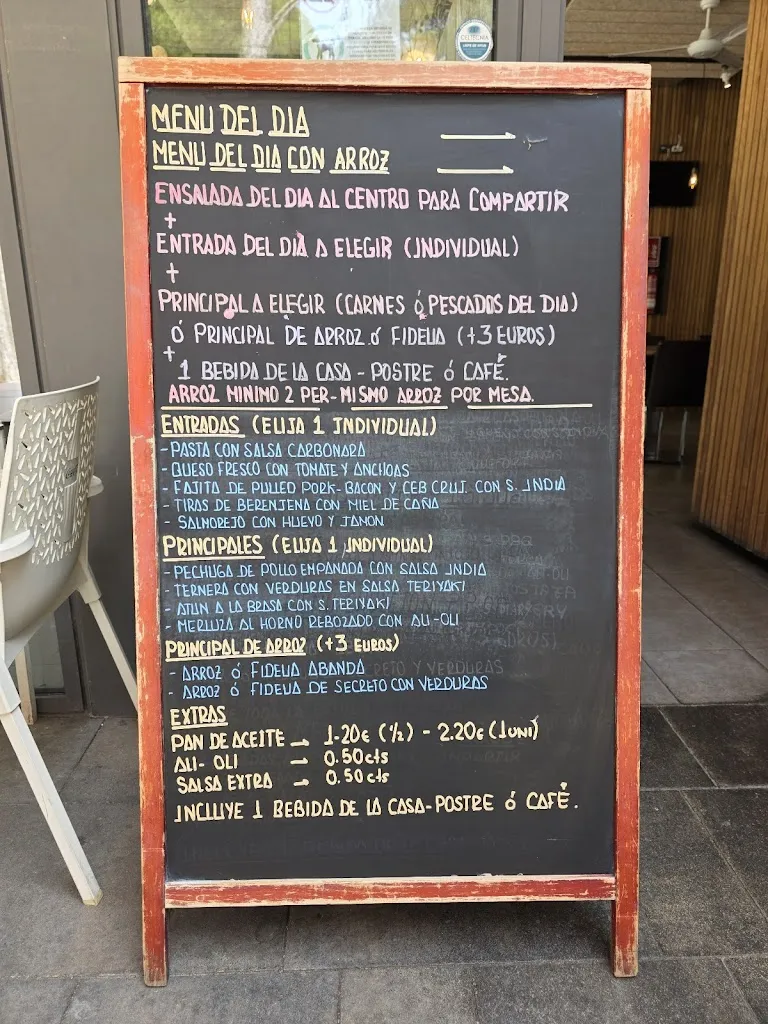 MENU DEL DIA
MENU DEL DIA CON ARROZ
ENSALADA DEL DIA AL CENTRO PARA COMPARTIR
+
ENTRADA DEL DIA A ELEGIR (INDIVIDUAL)
+
PRINCIPAL A ELEGIR (CARNES ó PESCADOS DEL DIA)
ó PRINCIPAL DE ARROZ ó FIDEUA (+3 EUROS)
+
1 BEBIDA DE LA CASA - POSTRE ó CAFÉ.
ARROZ MINIMO 2 PER- MISMO ARROZ POR MESA.
ENTRADAS (ELIJA 1 INDIVIDUAL)
- PASTA CON SALSA CARBONARA
- QUESO FRESCO CON TOMATE Y ANCHOAS
- FAJITA DE PULLED PORK- BACON Y CEB CRUJ. CON S. INDIA
- TIRAS DE BERENJENA CON MIEL DE CAÑA
- SALMOREJO CON HUEVO Y JAMON
PRINCIPALES (ELIJA 1 INDIVIDUAL)
- PECHUGA DE POLLO EMPANADA CON SALSA INDIA
- TERNERA CON VERDURAS EN SALSA TERIYAKI
- ATUN A LA BRASA CON S. TERIYAKI
- MERLUZA AL HORNO REBOZADO CON ALI-OLI
PRINCIPAL DE ARROZ (+3 EUROS)
- ARROZ ó FIDEUA ABANDA
- ARROZ ó FIDEUA DE SECRETO CON VERDURAS
EXTRAS
PAN DE ACEITE → 1.20€ (1/2) - 2.20€ (1 UNI)
ALI- OLI → 0.50 cts
SALSA EXTRA → 0.50 cts
INCLUYE 1 BEBIDA DE LA CASA - POSTRE ó CAFÉ.